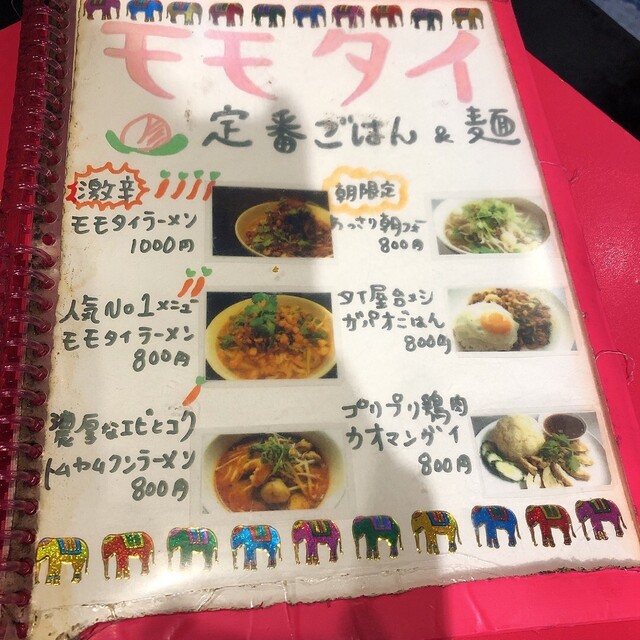 モモタイ
定番ごはん & 麺
激辛
モモタイラーメン
1000円
人気No1メニュー
モモタイラーメン
800円
濃厚なエビとコク
トムヤムクンラーメン
800円
朝限定
あっさり朝フォー
800円
タイ屋台メシ
ガパオごはん
800円
プリプリ鶏肉
カオマンガイ
800円